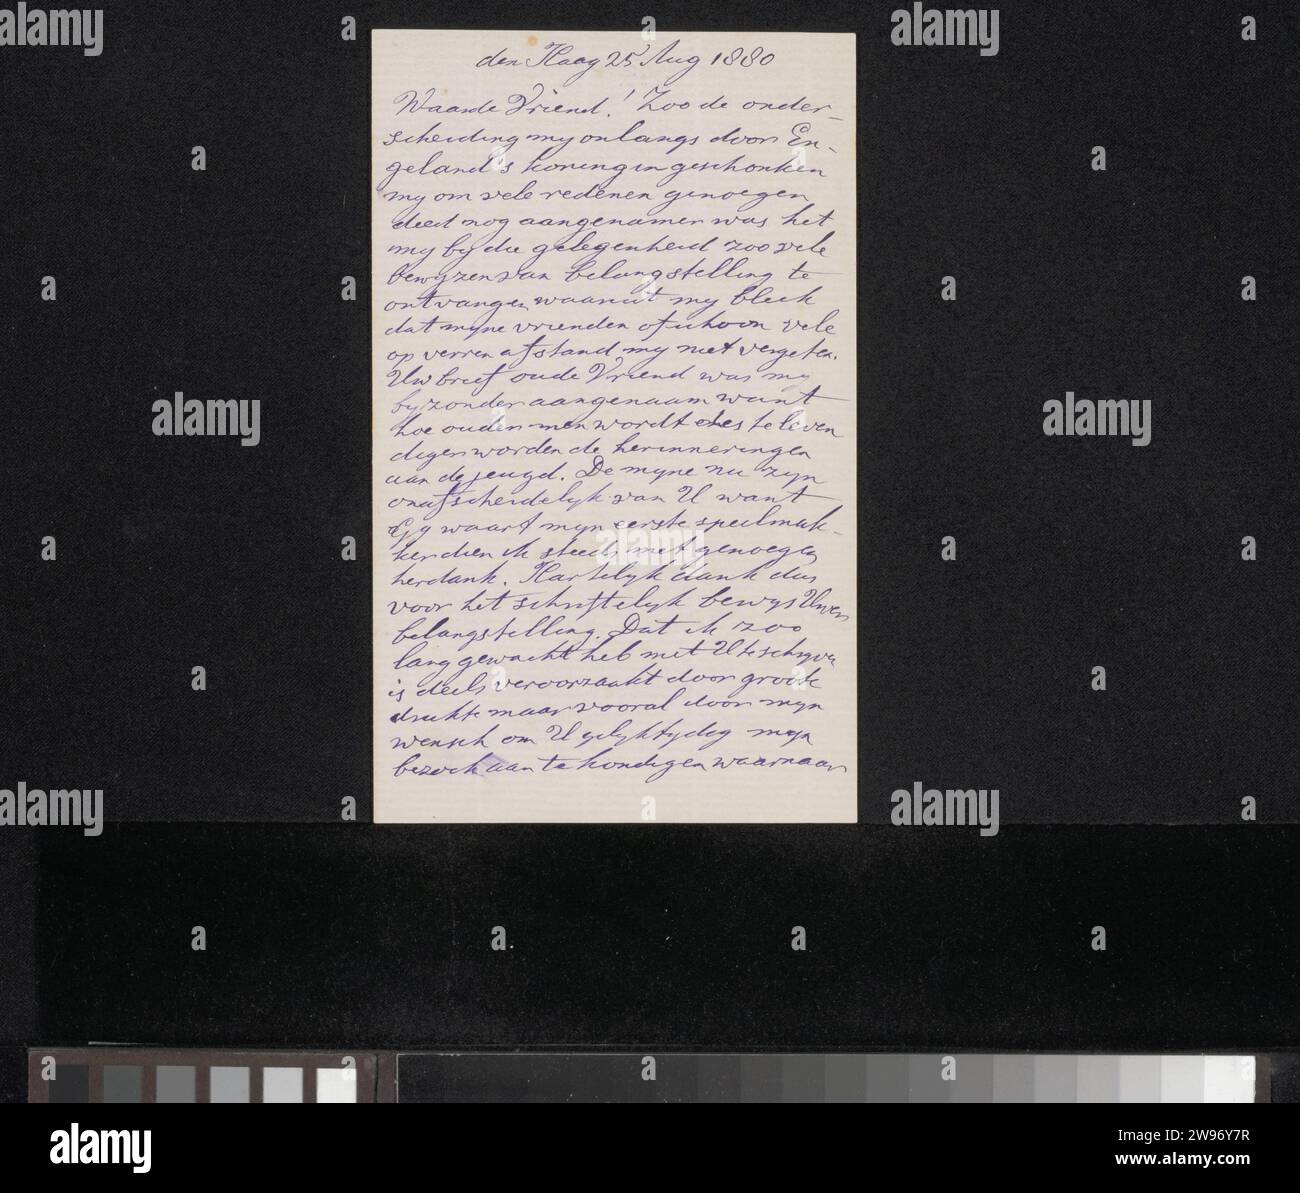 den Haag 25 Aug 1880
Waarde Vriend! Zoo de onder-
scheiding my onlangs door En-
geland's koningin geschonken
my om vele redenen genoegen
deed nog aangenamer was het
my by die gelegenheid zoo vele
bewyzen van belangstelling te
ontvangen waaruit my bleek
dat myne vrienden ofschoon vele
op verren afstand my niet vergeten.
Uw brief oude Vriend was my
byzonder aangenaam want
hoe ouder men wordt des te leven
diger worden de herinneringen
aan de jeugd. De myne nu zyn
onafscheidelyk van U want
Gy waart myn eerste speelmak-
ker dien ik steeds met genoegen
herdank. Hartelyk dank dus
voor het schriftelyk bewys Uwer
belangstelling. Dat ik zoo
lang gewacht heb met U te schryven
is deels veroorzaakt door groote
drukte maar vooral door myn
wensch om U gelyktydig myn
bezoek aan te kondigen waarnaar
alamy
Image ID: 2W96Y7R
www.alamy.com